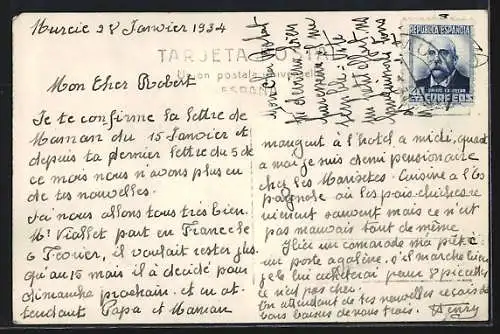 Murcie 28 Janvier 1934
TARJETA POSTAL
Union postale universelle
ESPAÑA
REPUBLICA ESPAÑOLA
CORREOS
Mon Cher Robert
Je te confirme la lettre de
Maman du 15 Janvier et
depuis ta dernier lettre du 5 de
ce mois nous n'avons plus eu
de tes nouvelles.
Ici nous allons tous très bien.
Mr Viallet part en France le
6 Février, il voulait rester plus
qu'au 15 mais il a décidé pour
dimanche prochain. et en at-
tendant Papa et Maman
mangent à l'hotel a midi, quant
a moi je suis demi pensionnaire
chez les Maristes. Cuisine a l'Es
pagnole ou les pois-chiches re
viennent souvent mais ce n'est
pas mauvais tout de même.
Hier un camarade m'a prété
un poste a galène, s'il marche bien
je le lui achèterai pour 8 piecettes
ce n'est pas cher.
En attendant de tes nouvelles reçois de
nous baisers de nous trois. Henry